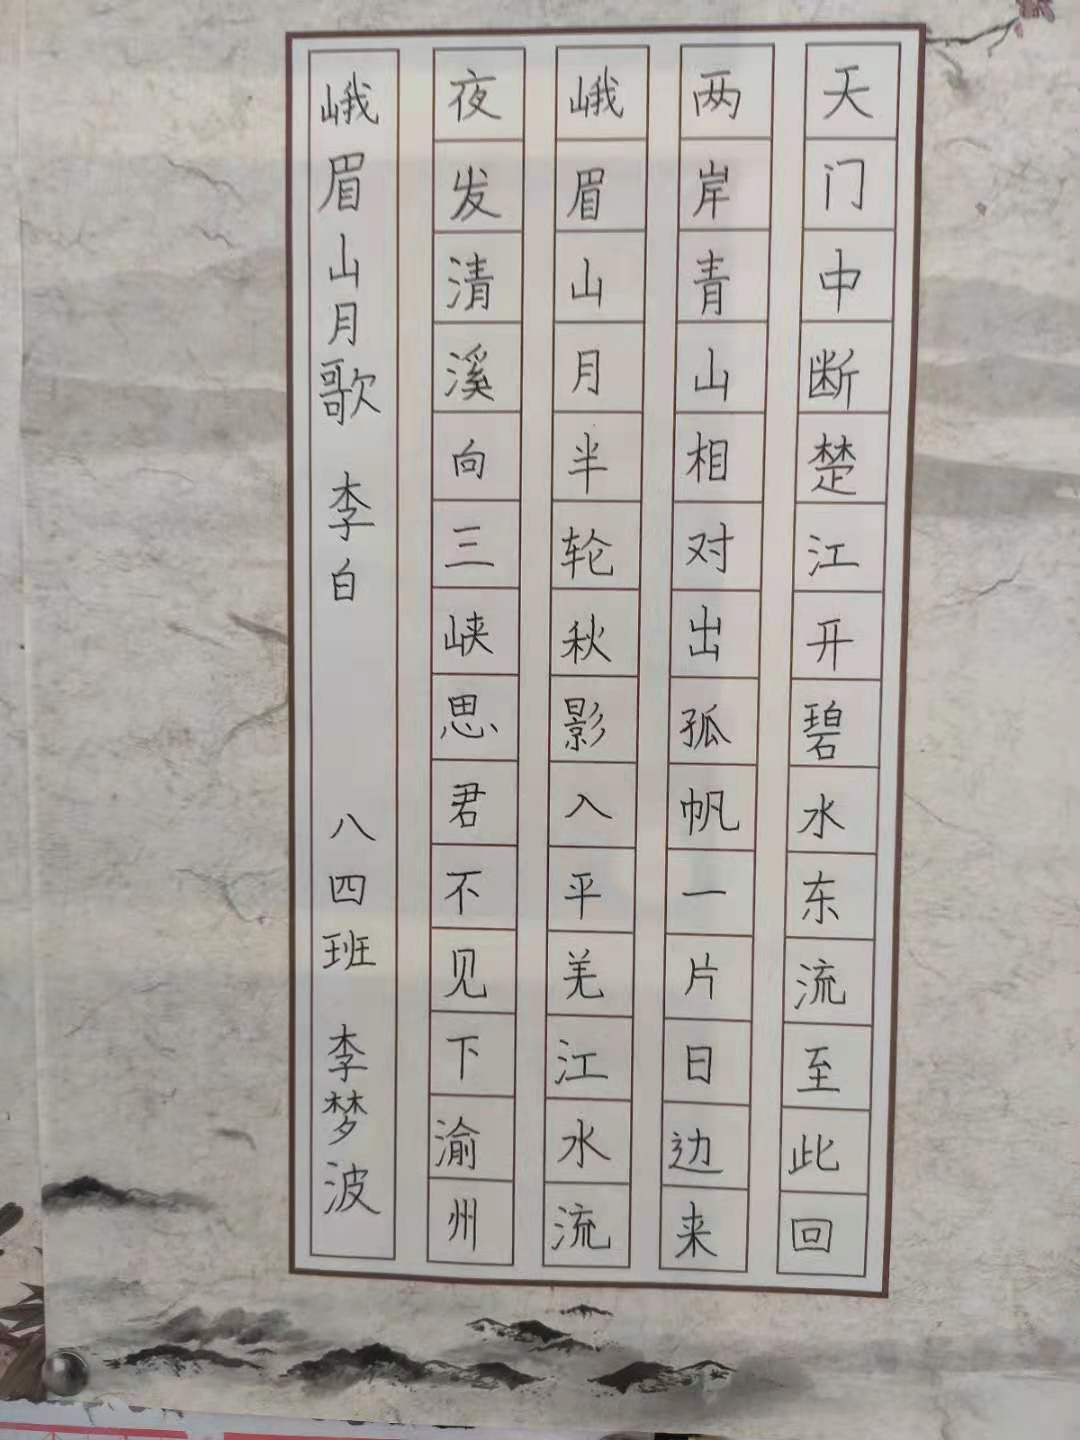 天门中断楚江开碧水东流至此回
两岸青山相对出孤帆一片日边来
峨眉山月半轮秋影入平羌江水流
夜发清溪向三峡思君不见下渝州
峨眉山月歌 李白 八四班 李梦波